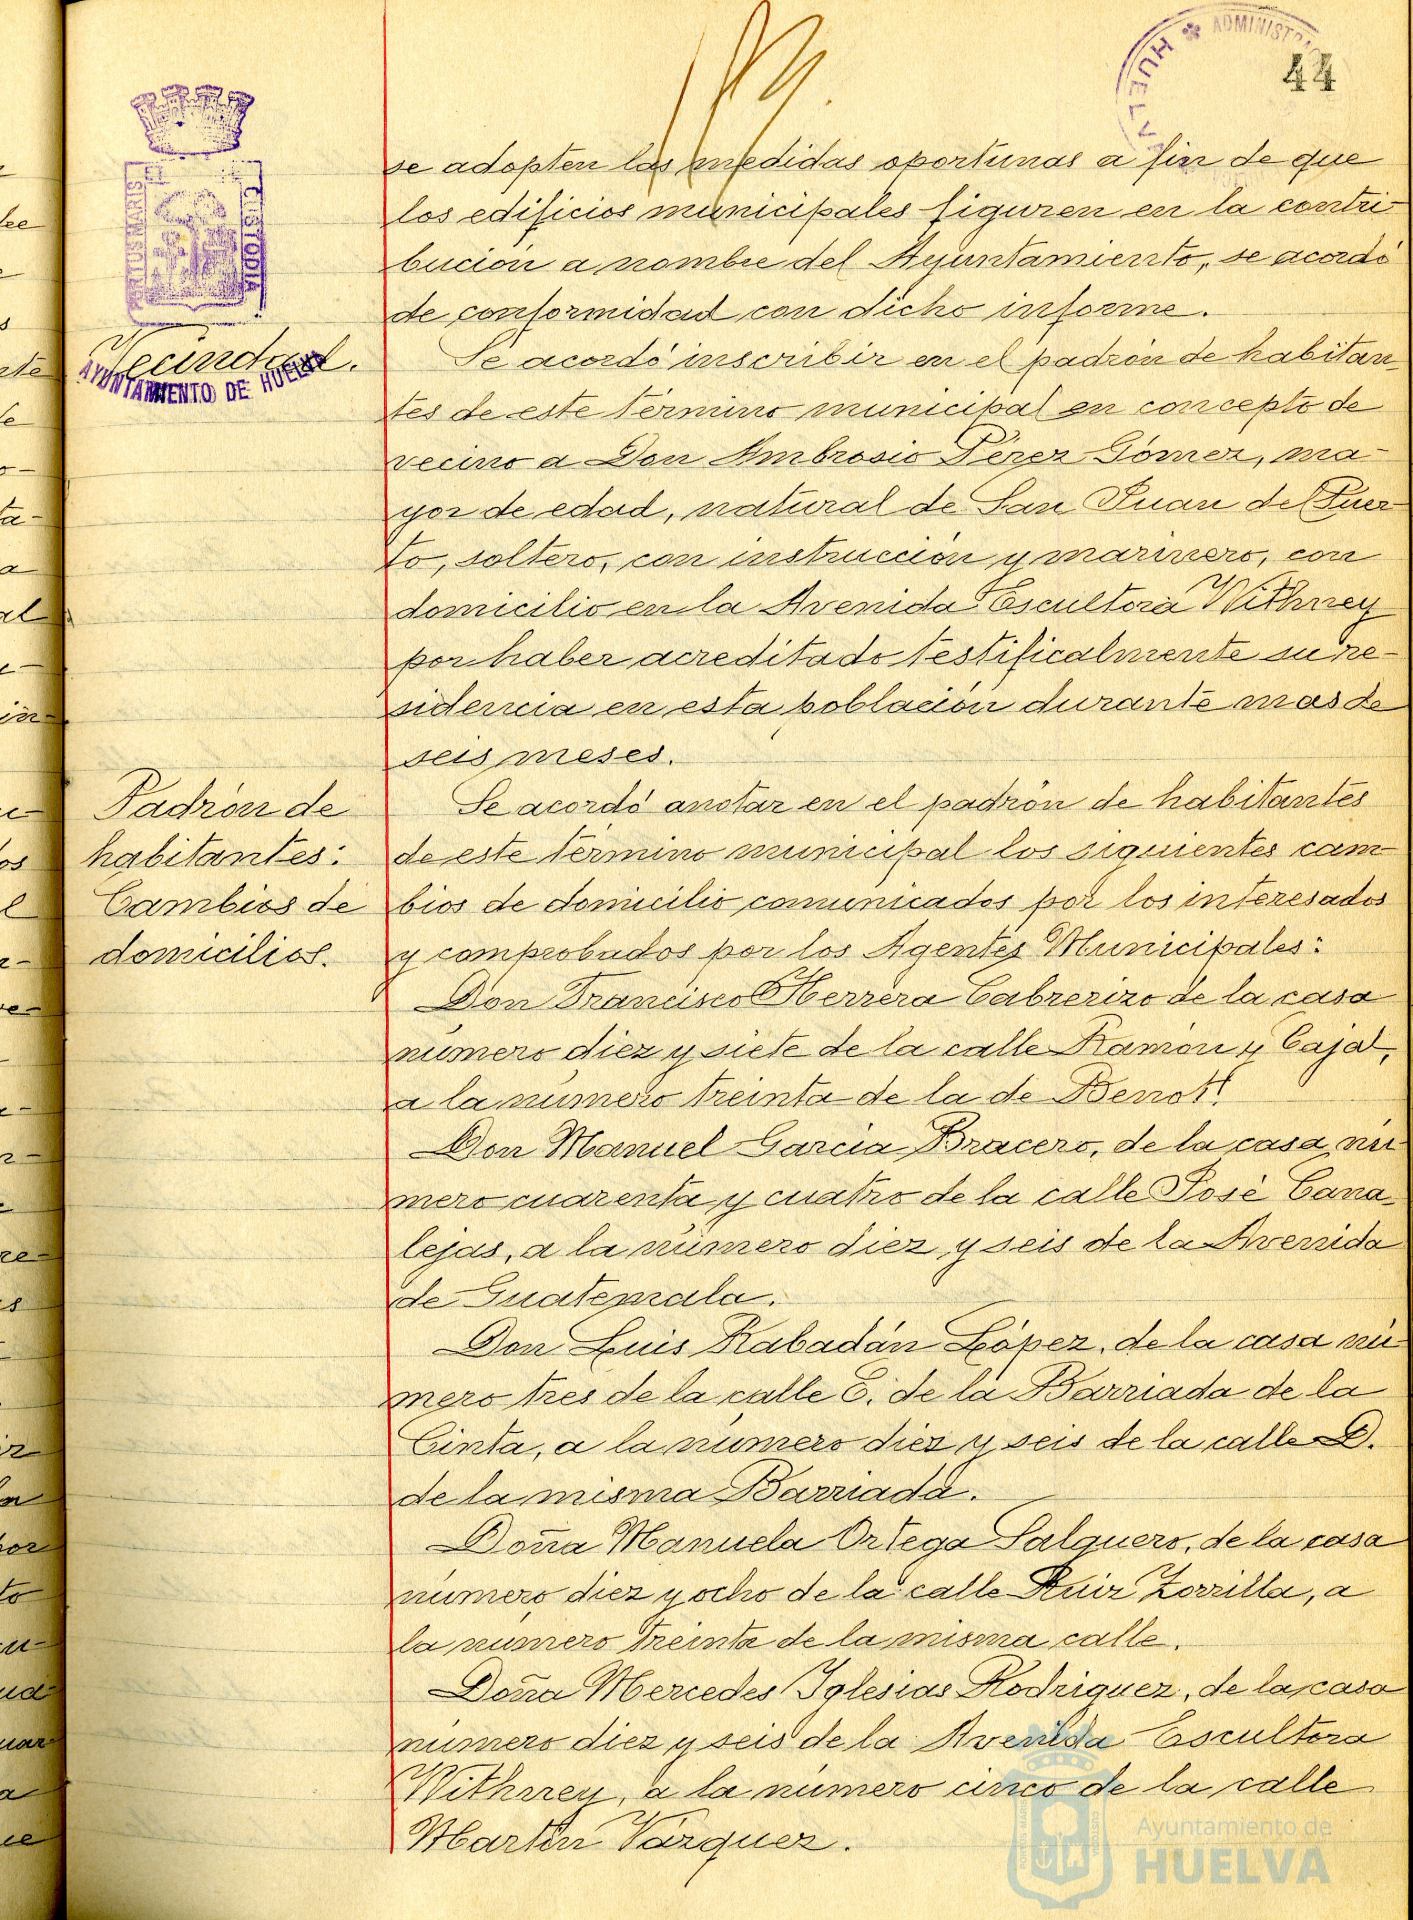 ADMINISTRAC
HUELVA
44
PORTUS MARIS
CUSTODIA
AYUNTAMIENTO DE HUELVA
se adopten las medidas oportunas a fin de que
los edificios municipales figuren en la contri-
bución a nombre del Ayuntamiento, se acordó
de conformidad con dicho informe.
Vecindad.
Se acordó inscribir en el padrón de habitan-
tes de este término municipal en concepto de
vecino a Don Ambrosio Pérez Gómez, ma-
yor de edad, natural de San Juan del Puer-
to, soltero, con instrucción y marinero, con
domicilio en la Avenida Escultora Withney
por haber acreditado testificalmente su re-
sidencia en esta población durante mas de
seis meses.
Padrón de
habitantes:
Cambios de
domicilios.
Se acordó anotar en el padrón de habitantes
de este término municipal los siguientes cam-
bios de domicilio comunicados por los interesados
y comprobados por los Agentes Municipales:
Don Francisco Herrera Cabrerizo de la casa
número diez y siete de la calle Ramón y Cajal,
a la número treinta de la de Berrot.
Don Manuel García Bracero, de la casa nú-
mero cuarenta y cuatro de la calle José Cana-
lejas, a la número diez y seis de la Avenida
de Guatemala.
Don Luis Rabadán López, de la casa nú-
mero tres de la calle E. de la Barriada de la
Cinta, a la número diez y seis de la calle D.
de la misma Barriada.
Doña Manuela Ortega Salguero, de la casa
número diez y ocho de la calle Ruiz Zorrilla, a
la número treinta de la misma calle.
Doña Mercedes Iglesias Rodriguez, de la casa
número diez y seis de la Avenida Escultora
Withney, a la número cinco de la calle
Martín Vázquez.
Ayuntamiento de
HUELVA